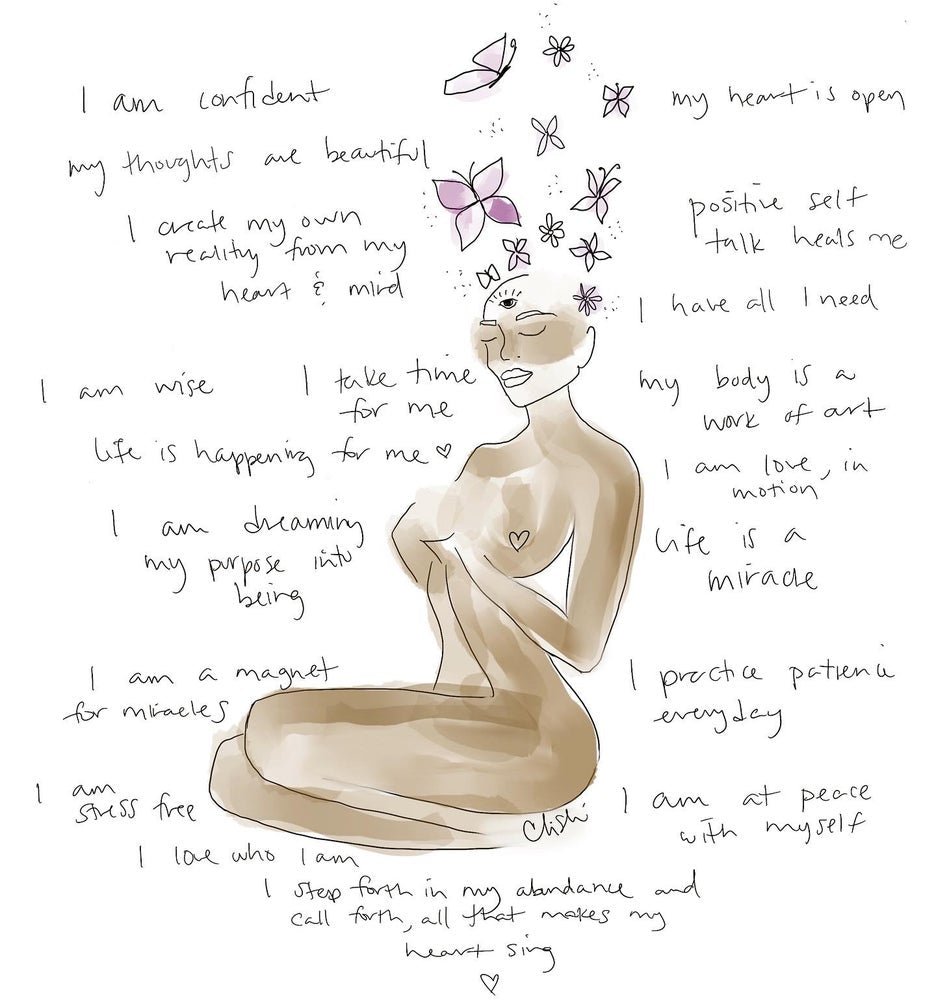 I am confident
my thoughts are beautiful
I create my own
reality from my
heart & mind
I am wise
I take time
for me
life is happening for me ♡
I am dreaming
my purpose into
being
I am a magnet
for miracles
I am
stress free
I love who I am
my heart is open
positive self
talk heals me
I have all I need
my body is a
work of art
I am love, in
motion
life is a
miracle
I practice patience
everyday
I am at peace
with myself
Clishi
I step forth in my abundance and
call forth, all that makes my
heart sing
♡